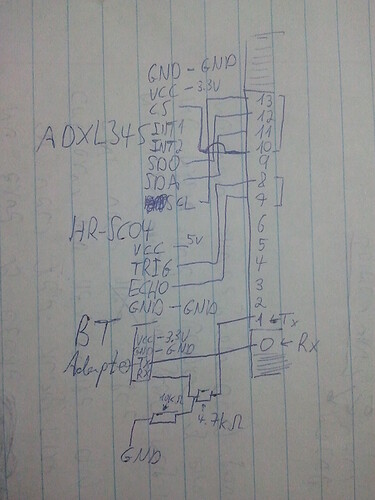 GND - GND
VCC - 3.3V
CS
ADXL345
INT1
INT2
SDO
SDA
SCL
13
12
11
10
9
8
7
6
5
4
3
2
1 ← Tx
0 ← Rx
HR-SC04
VCC - 5V
TRIG
ECHO
GND - GND
BT
Adapter
VCC - 3.3V
GND - GND
TX
RX
10KΩ
4.7KΩ
GND